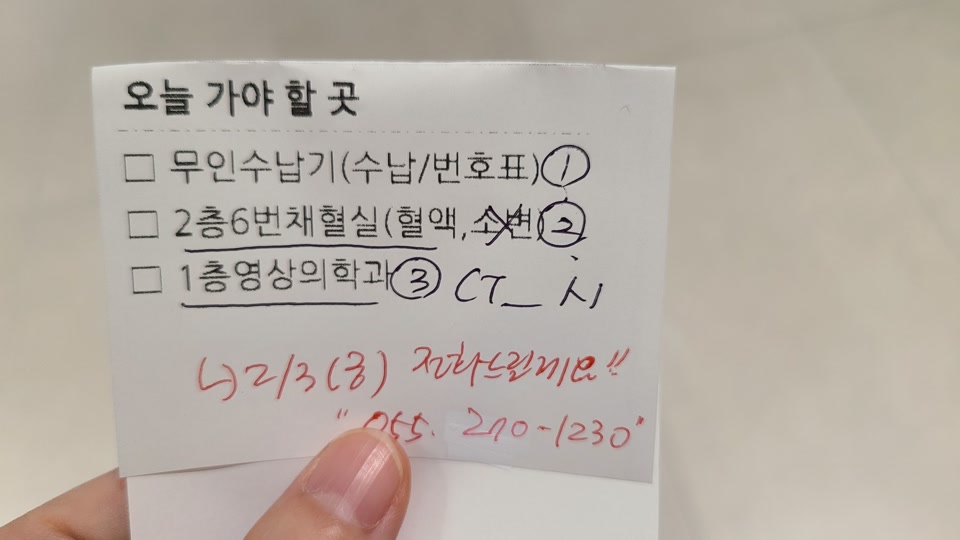 오늘 가야 할 곳
□ 무인수납기(수납/번호표) ①
□ 2층6번채혈실(혈액,소변) ②
□ 1층영상의학과 ③ CT_ 시
↳ 2/3(금) 전화드릴게요!!
"055. 270-1230"